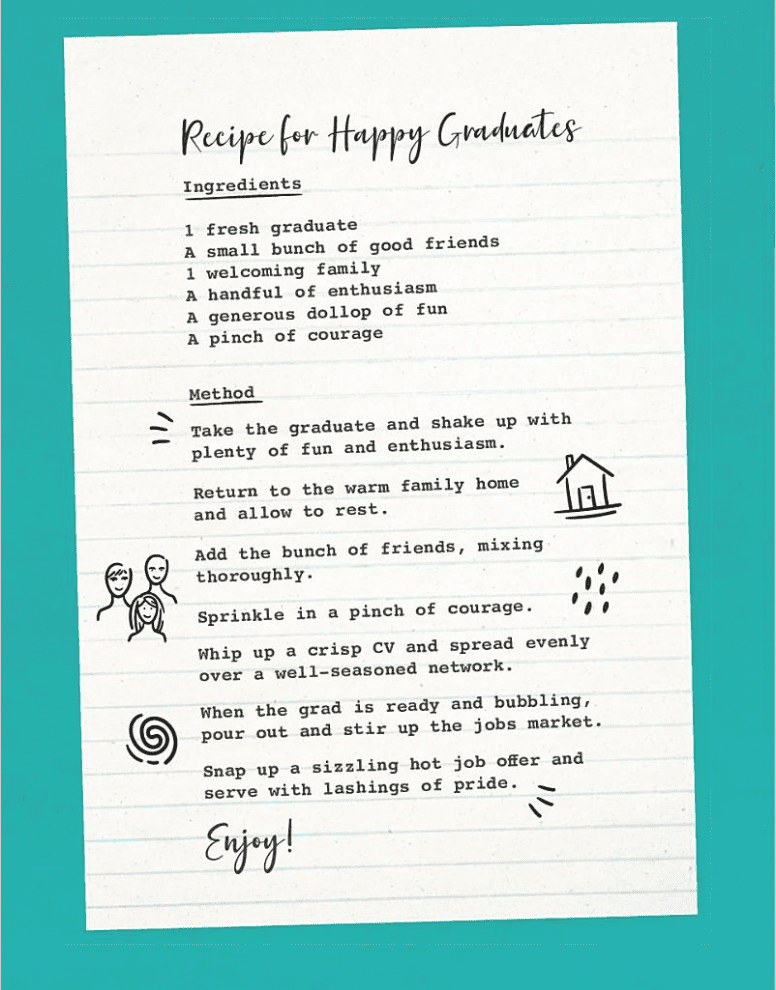 Recipe for Happy Graduates
Ingredients
1 fresh graduate
A small bunch of good friends
1 welcoming family
A handful of enthusiasm
A generous dollop of fun
A pinch of courage
Method
Take the graduate and shake up with
plenty of fun and enthusiasm.
Return to the warm family home
and allow to rest.
Add the bunch of friends, mixing
thoroughly.
Sprinkle in a pinch of courage.
Whip up a crisp CV and spread evenly
over a well-seasoned network.
When the grad is ready and bubbling,
pour out and stir up the jobs market.
Snap up a sizzling hot job offer and
serve with lashings of pride.
Enjoy!